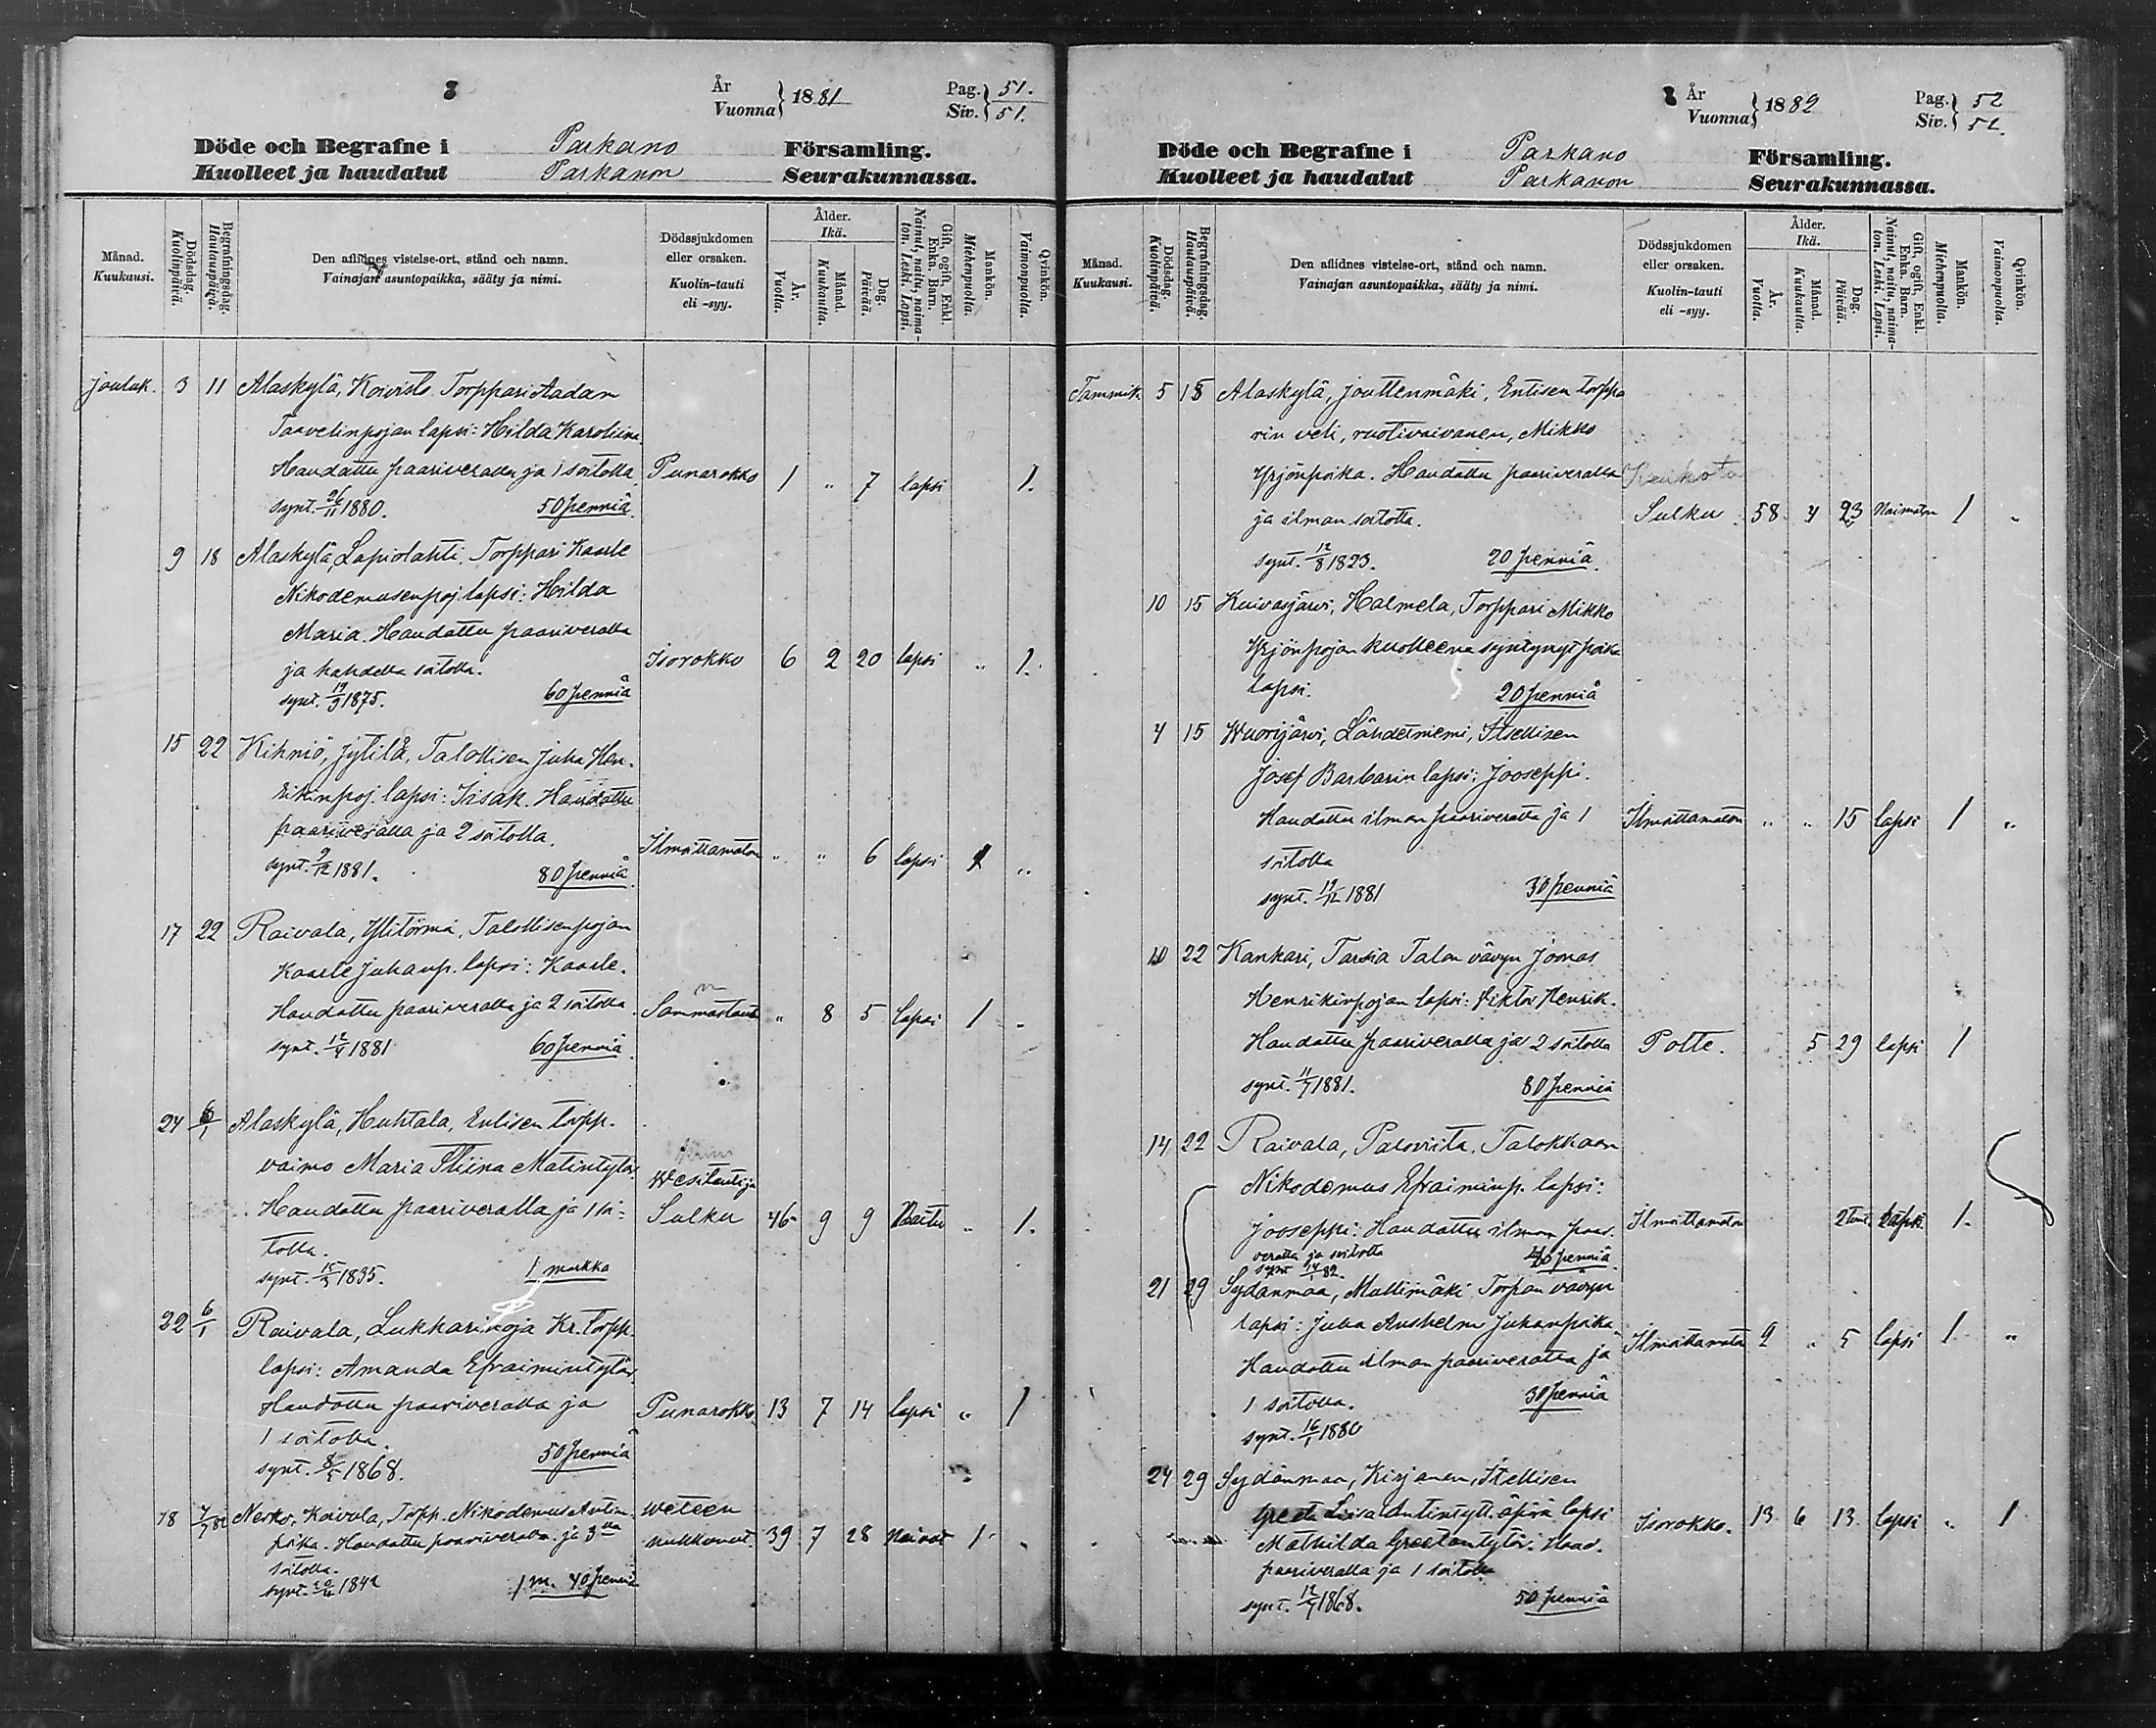 År
Vuonna 1881
Pag. 51.
Siv. 51.
Döde och Begrafne i Parkano Församling.
Kuolleet ja haudatut Parkanon Seurakunnassa.
Månad. Kuukausi.
Dödsdag. Kuolinpäivä.
Begrafningsdag. Hautauspäivä.
Den aflidnes vistelse-ort, stånd och namn.
Vainajan asuntopaikka, sääty ja nimi.
Dödssjukdomen eller orsaken.
Kuolin-tauti eli -syy.
Ålder. Ikä.
År. Vuotta.
Månad. Kuukautta.
Dag. Päivää.
Gift, ogift, Enkl. Enka. Barn.
Nainut, naitu, naima-ton. Leski. Lapsi.
Mankön. Miehenpuolta.
Qvinkön. Vaimonpuolta.
Jouluk. 3 11 Alaskylä, Koivisto. Torppari Aadam
Taavetinpojan lapsi: Hilda Karoliina
Haudattu paariveralla ja 1 soitolla Punarokko 1 " 7 lapsi 1.
synt. 26/11 1880. 50 penniä
9 18 Alaskylä, Lapiolahti. Torppari Kaarle
Nikodemusenpoj. lapsi: Hilda
Maria. Haudattu paariveralla
ja kahdella soitolla. Isorokko 6 2 20 lapsi " 1.
synt. 19/9 1875. 60 penniä
15 22 Kihniö, Jytilä, Talollisen Juha Hen-
rikinpoj. lapsi: Iisak. Haudattu
paariveralla ja 2 soitolla. Ilmoittamaton " " 6 lapsi 1 "
synt. 9/12 1881. 80 penniä
17 22 Raivala, Ylitörmä, Talollisenpojan
Kaarle Juhanp. lapsi: Kaarle.
Haudattu paariveralla ja 2 soitolla. Sammastauti " 8 5 lapsi 1
synt. 12/4 1881 60 penniä
24 6/1 Alaskylä, Huhtala, Entisen torpp.
vaimo Maria Stiina Matintytär
Wesitauti ja
Haudattu paariveralla ja 1 soi- Sulku 46 9 9 Naitu " 1.
tolla.
synt. 15/3 1835. 1 markka
22 6/1 Raivala, Lukkarinoja Kr. torpp.
lapsi: Amanda Efraimintytär
Haudattu paariveralla ja Punarokko 13 7 14 lapsi " 1
1 soitolla.
synt. 8/5 1868. 50 penniä
18 7/1 82 Nerko, Koivula, Torpp. Nikodemus Antin- weteen
poika. Haudattu paariveralla ja 3lla nukkunut 39 7 28 Nainut 1
soitolla.
synt. 1842 1 m. 40 penniä
År
Vuonna 1882
Pag. 52
Siv. 52.
Döde och Begrafne i Parkano Församling.
Kuolleet ja haudatut Parkanon Seurakunnassa.
Månad. Kuukausi.
Dödsdag. Kuolinpäivä.
Begrafningsdag. Hautauspäivä.
Den aflidnes vistelse-ort, stånd och namn.
Vainajan asuntopaikka, sääty ja nimi.
Dödssjukdomen eller orsaken.
Kuolin-tauti eli -syy.
Ålder. Ikä.
År. Vuotta.
Månad. Kuukautta.
Dag. Päivää.
Gift, ogift, Enkl. Enka. Barn.
Nainut, naitu, naima-ton. Leski. Lapsi.
Mankön. Miehenpuolta.
Qvinkön. Vaimonpuolta.
Tammik. 5 15 Alaskylä, Jouttenmäki, Entisen torppa
rin veli, ruotivaivanen, Mikko
Yrjönpoika. Haudattu paariveralla
ja ilman soitotta. Sulku 58 4 23 Naimaton 1 "
synt. 12/8 1823. 20 penniä
10 15 Kuivasjärvi, Halmela, Torppari Mikko
Yrjönpojan kuolleena syntynyt poika
lapsi. 20 penniä
4 15 Wuorijärvi, Lähdetniemi, Itsellisen
Josef Barbarin lapsi: Jooseppi.
Haudattu ilman paariveratta ja 1 Ilmoittamaton " " 15 lapsi 1 "
soitolla
synt. 19/12 1881 30 penniä
10 22 Kankari, Tarsia Talon vävyn Joonas
Henrikinpojan lapsi: Viktor Henrik.
Haudattu paariveralla ja 2 soitolla Polte. 5 29 lapsi 1
synt. 11/7 1881. 80 penniä
14 22 Raivala, Palovista, Talokkaan
Nikodemus Efraiminp. lapsi:
Jooseppi: Haudattu ilman paar. Ilmoittamaton 2 tunt. lapsi 1.
veratta ja soitotta penniä
synt 14/1 82.
21 29 Sydänmaa, Mallimäki Torpan vävyn
lapsi: Juha Anshelm Juhanpoika
Haudattu ilman paariveratta ja Ilmoittamaton 2 " 5 lapsi 1 "
1 soitolla. 30 penniä
synt. 16/1 1880
24 29 Sydänmaa, Kirjanen, Itsellisen
Greeta Liisa Antintytt. äpärä lapsi Isorokko. 13 6 13 lapsi " 1
Mathilda Greetantytär. Haud.
paariveralla ja 1 soitolla
synt. 12/7 1868. 50 penniä